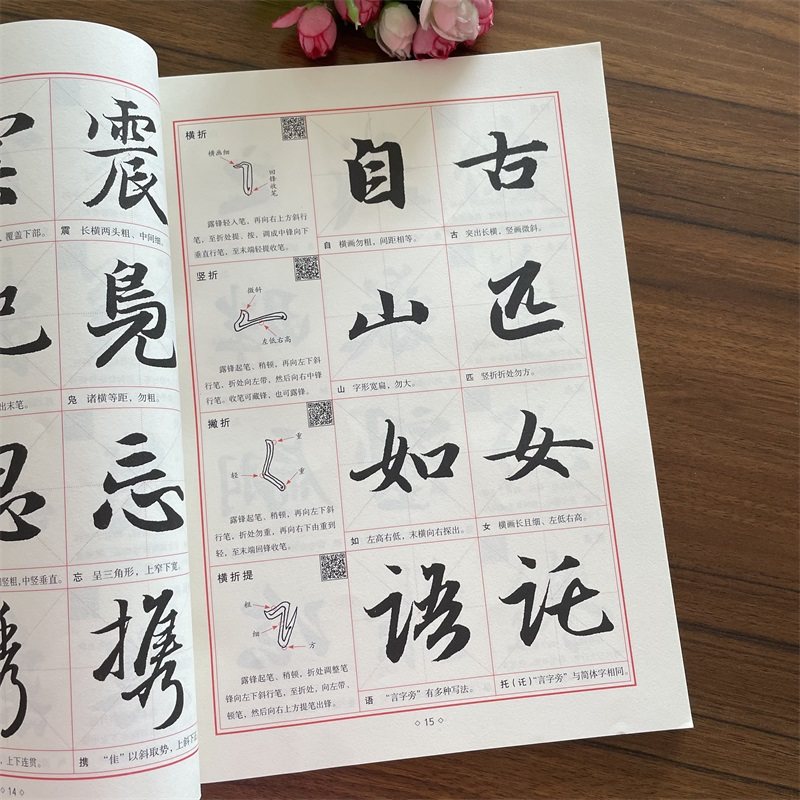 震
覆盖下部。
震 长横两头粗、中间细
凫
出末笔。
凫 诸横等距，勿粗。
忘
竖粗,中竖垂直。
忘 呈三角形，上窄下宽。
携
上下连贯。
携 “隹”以斜取势，上斜下
◇14◇
横折
横画细
回锋收笔
露锋轻入笔，再向右上方斜行
笔，至折处提、按，调成中锋向下
垂直行笔，至末端轻提收笔。
自
自 横画勿粗，间距相等。
古
古 突出长横，竖画微斜。
竖折
微斜
左低右高
露锋起笔、稍顿，再向左下斜
行笔，折处向左带，然后向右中锋
行笔。收笔可藏锋，也可露锋。
山
山 字形宽扁，勿大。
匹
匹 竖折折处勿方。
撇折
重
轻
重
露锋起笔、稍顿，再向左下斜
行笔，折处勿重，再向右下由重到
轻，至末端回锋收笔。
如
如 左高右低，末横向右探出。
女
女 横画长且细、左低右高。
横折提
粗
细
方
露锋起笔、稍顿，折处调整笔
锋向左下斜行笔，至折处，向左带、
顿笔，然后向右上方提笔出锋。
语
语 “言字旁”有多种写法。
讬
托(讬)“言字旁”与简体字相同。
◇15◇